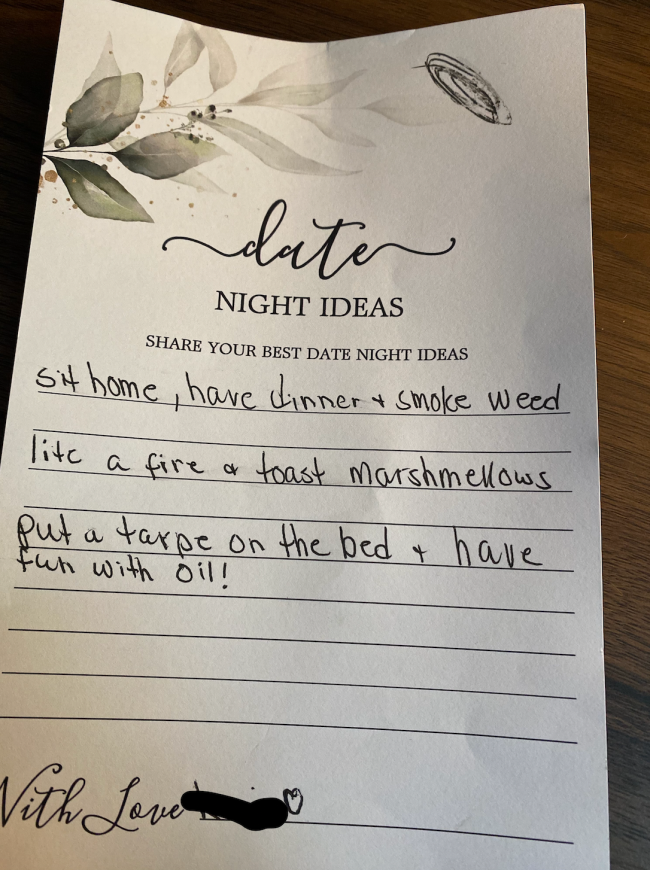 date
NIGHT IDEAS
SHARE YOUR BEST DATE NIGHT IDEAS
sit home, have dinner + smoke weed
lite a fire & toast marshmellows
put a tarpe on the bed + have
fun with oil!
With Love